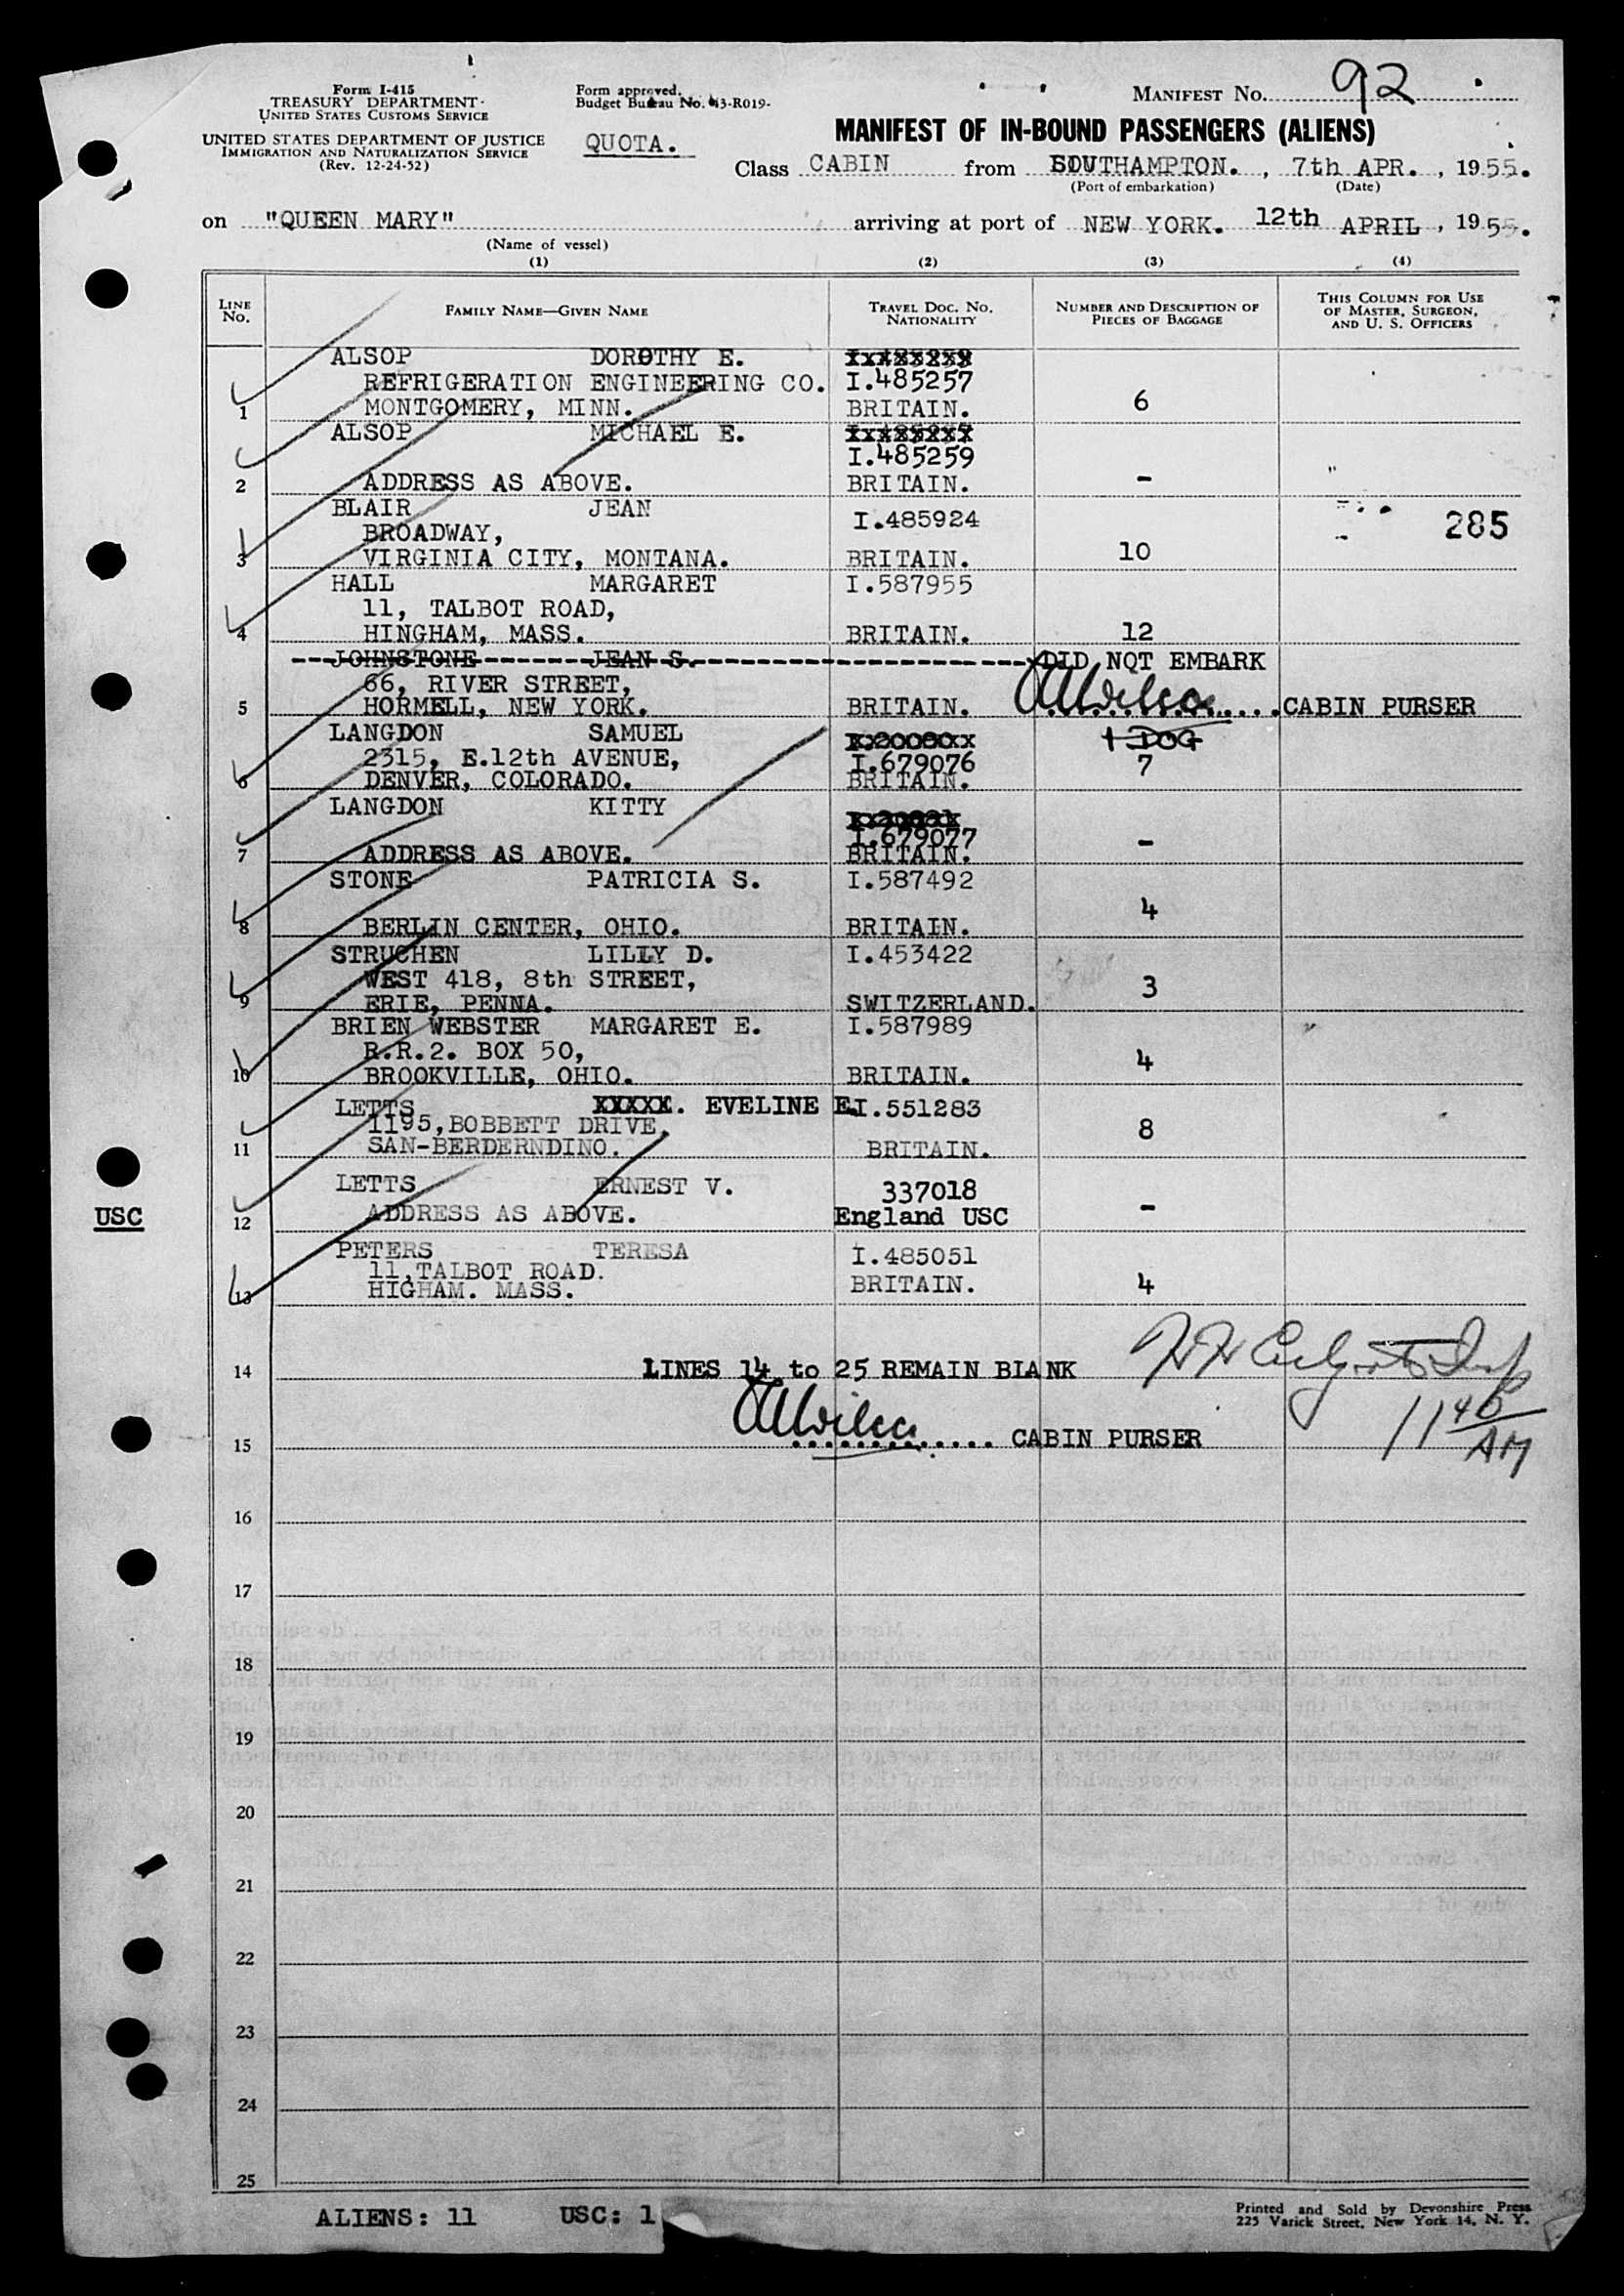 Form I-415
TREASURY DEPARTMENT
UNITED STATES CUSTOMS SERVICE
UNITED STATES DEPARTMENT OF JUSTICE
IMMIGRATION AND NATURALIZATION SERVICE
(Rev. 12-24-52)
Form approved.
Budget Bureau No. 43-R019-
QUOTA.
MANIFEST NO. 92
MANIFEST OF IN-BOUND PASSENGERS (ALIENS)
Class CABIN from SOUTHAMPTON. , 7th APR. , 1955.
(Port of embarkation) (Date)
on "QUEEN MARY" arriving at port of NEW YORK. 12th APRIL , 1955.
(Name of vessel)
(1) (2) (3) (4)
LINE No. FAMILY NAME—GIVEN NAME TRAVEL DOC. NO. NATIONALITY NUMBER AND DESCRIPTION OF PIECES OF BAGGAGE THIS COLUMN FOR USE OF MASTER, SURGEON, AND U. S. OFFICERS
ALSOP DOROTHY E.
REFRIGERATION ENGINEERING CO. I.485257
1 MONTGOMERY, MINN. BRITAIN. 6
ALSOP MICHAEL E.
I.485259
2 ADDRESS AS ABOVE. BRITAIN. -
BLAIR JEAN I.485924 285
BROADWAY,
3 VIRGINIA CITY, MONTANA. BRITAIN. 10
HALL MARGARET I.587955
11, TALBOT ROAD,
4 HINGHAM, MASS. BRITAIN. 12
JOHNSTONE JEAN S. DID NOT EMBARK
66, RIVER STREET,
5 HORMELL, NEW YORK. BRITAIN. CABIN PURSER
LANGDON SAMUEL 1 DOG
2315, E.12th AVENUE, I.679076 7
6 DENVER, COLORADO. BRITAIN.
LANGDON KITTY
I.679077
7 ADDRESS AS ABOVE. BRITAIN. -
STONE PATRICIA S. I.587492
4
8 BERLIN CENTER, OHIO. BRITAIN.
STRUCHEN LILLY D. I.453422
WEST 418, 8th STREET, 3
9 ERIE, PENNA. SWITZERLAND.
BRIEN WEBSTER MARGARET E. I.587989
R.R.2. BOX 50, 4
10 BROOKVILLE, OHIO. BRITAIN.
LETTS XXXXX. EVELINE E. I.551283
1195,BOBBETT DRIVE, 8
11 SAN-BERDERNDINO. BRITAIN.
LETTS ERNEST V. 337018
USC 12 ADDRESS AS ABOVE. England USC -
PETERS TERESA I.485051
11,TALBOT ROAD.
13 HIGHAM. MASS. BRITAIN. 4
14 LINES 14 to 25 REMAIN BLANK
15 CABIN PURSER 11 40 AM
16
17
18
19
20
21
22
23
24
25
ALIENS: 11 USC: 1
Printed and Sold by Devonshire Press
225 Varick Street, New York 14, N. Y.